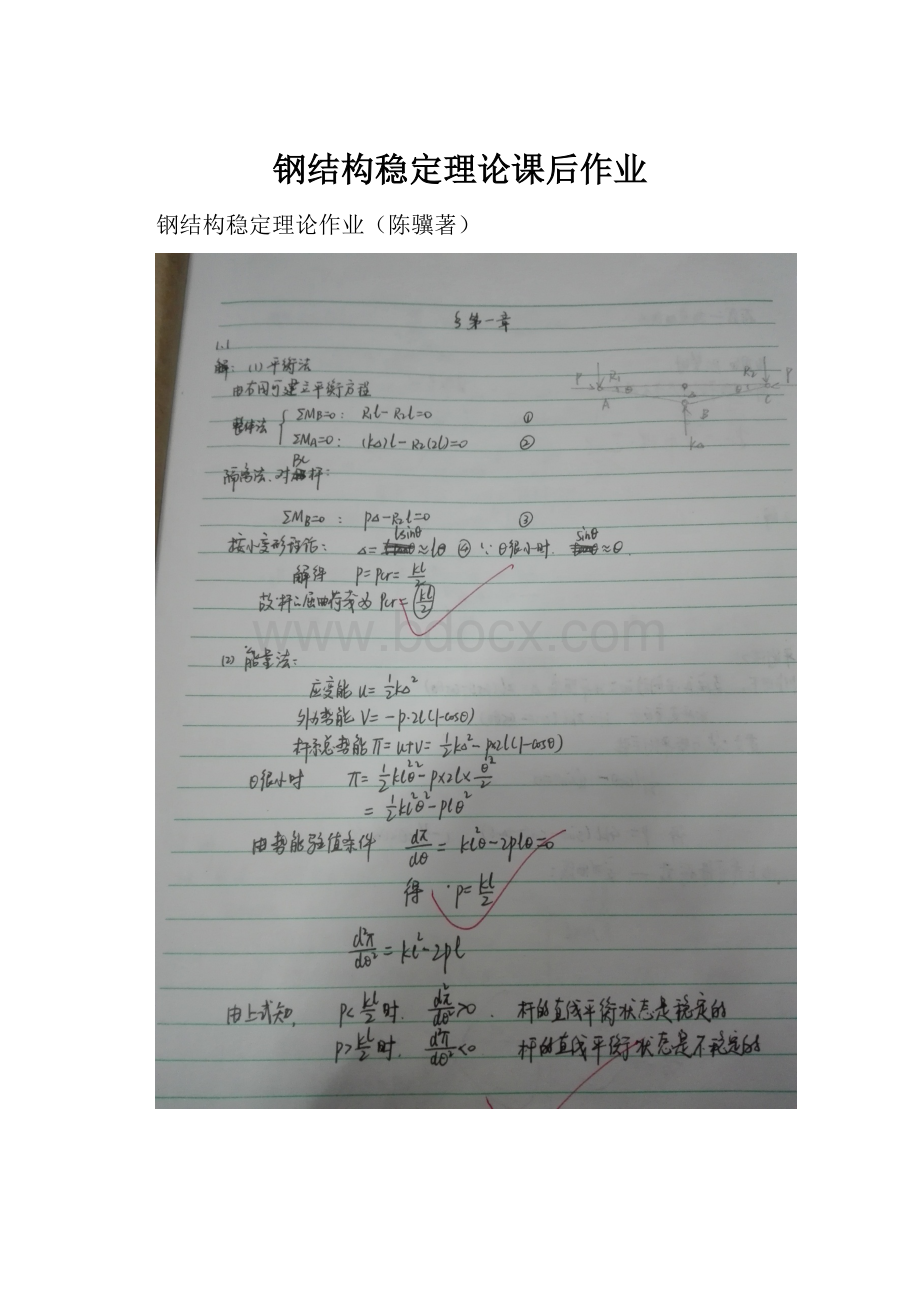 钢结构稳定理论课后作业
钢结构稳定理论作业（陈骥著）
§第一章
1.1
解：(1)平衡法
由右图可建立平衡方程
整体法 { ΣMB=0： R1l-R2l=0 ①
ΣMA=0： (kΔ)l-R2(2l)=0 ②
隔离法.对BC杆：
ΣMB=0： PΔ-R2l=0 ③
按小变形理论： Δ=lsinθ≈lθ ④ ∵θ很小时. sinθ≈θ.
解得 P=Pcr=kl/2
故杆的屈曲荷载为 Pcr=kl/2
P R1 θ A Δ B kΔ θ R2 C P
www.bdocx.com
(2) 能量法：
应变能 U=½kΔ²
外力势能 V=-P·2l(1-cosθ)
杆系总势能 π=U+V=½kΔ²-P×2l(1-cosθ)
θ很小时 π=½kl²θ²-P×2l×θ²/2
=½kl²θ²-Plθ²
由势能驻值条件 dπ/dθ=kl²θ-2Plθ=0
得 ·P=kl/2
d²π/dθ²=kl²-2Pl
由上式知， P<kl/2时. d²π/dθ²>0. 杆的直线平衡状态是稳定的
P>kl/2时. d²π/dθ²<0 杆的直线平衡状态是不稳定的